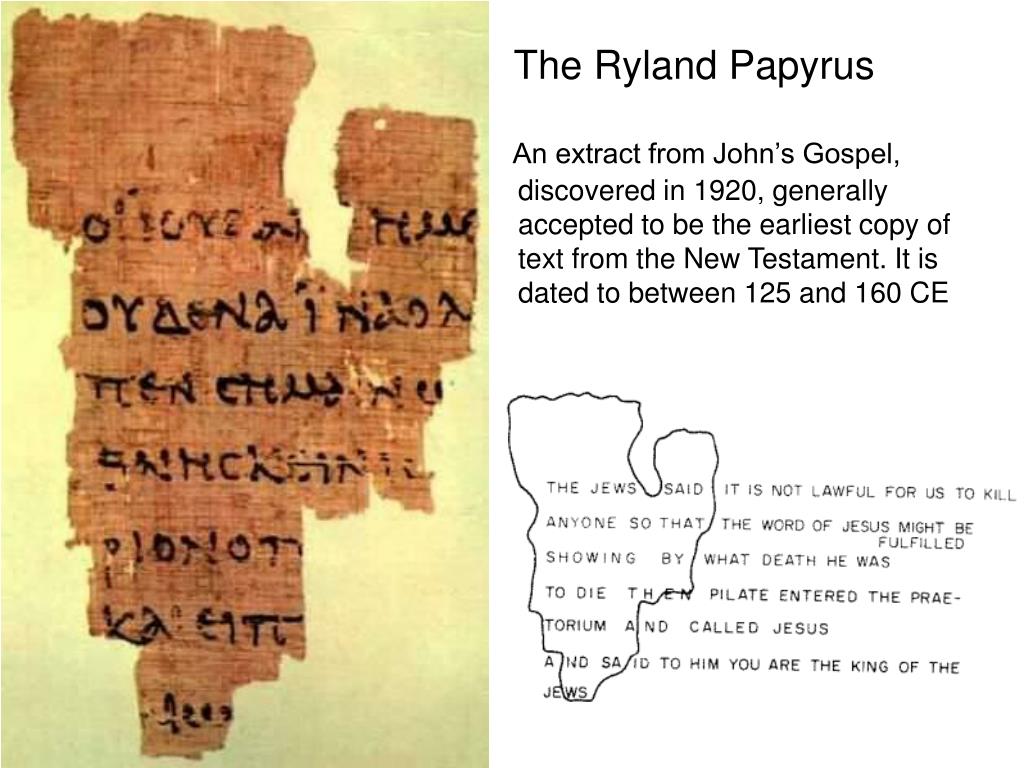 ΟΥΔΕΝΑ ΙΝΑ Ο Λ
ΠΕΝ CΗΜΑΙΝω
ΡΙΟΝ Ο Π
ΚΑΙ ΕΙΠ
The Ryland Papyrus
An extract from John’s Gospel,
discovered in 1920, generally
accepted to be the earliest copy of
text from the New Testament. It is
dated to between 125 and 160 CE
THE JEWS SAID IT IS NOT LAWFUL FOR US TO KILL
ANYONE SO THAT THE WORD OF JESUS MIGHT BE
FULFILLED
SHOWING BY WHAT DEATH HE WAS
TO DIE THEN PILATE ENTERED THE PRAE-
TORIUM AND CALLED JESUS
AND SAID TO HIM YOU ARE THE KING OF THE
JEWS